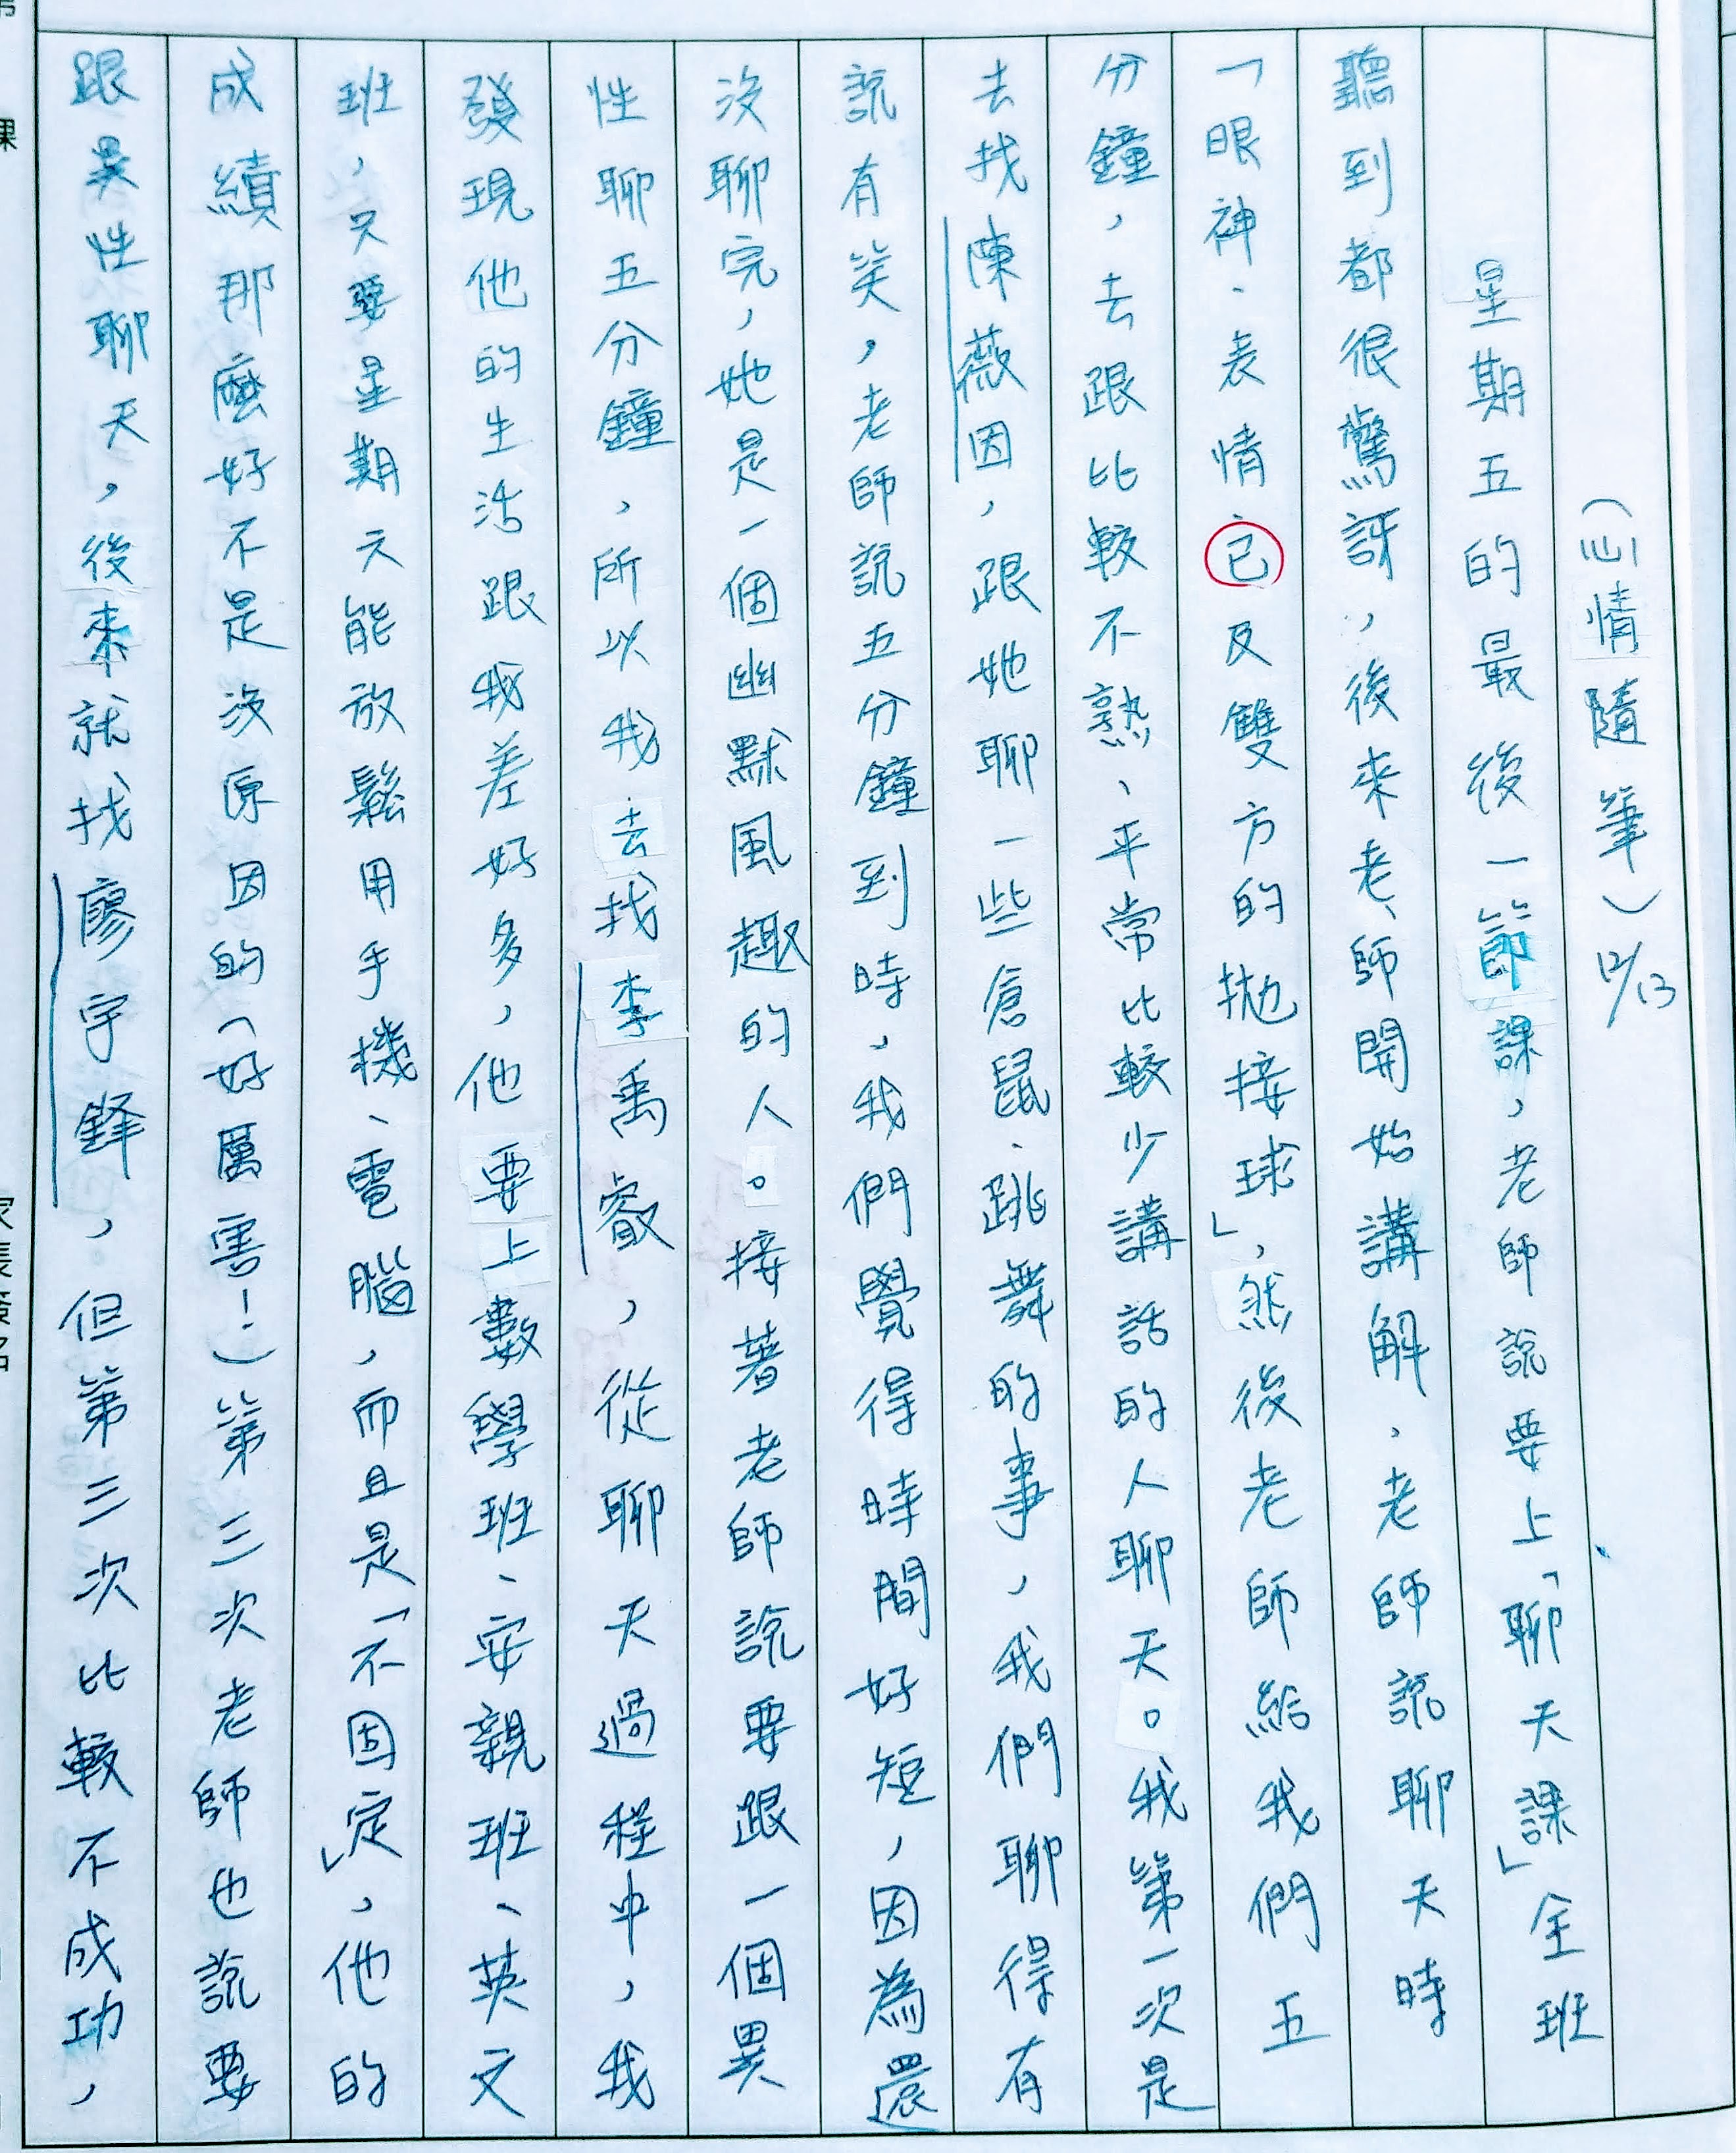 (心情隨筆) 12/13
星期五的最後一節課,老師說要上「聊天課」全班
聽到都很驚訝,後來老師開始講解、老師說聊天時
「眼神、表情已及雙方的拋接球」,然後老師給我們五
分鐘,去跟比較不熟、平常比較少講話的人聊天。我第一次是
去找陳薇因,跟她聊一些倉鼠、跳舞的事,我們聊得有
說有笑,老師說五分鐘到時,我們覺得時間好短,因為還
沒聊完,她是一個幽默風趣的人。接著老師說要跟一個異
性聊五分鐘,所以我去找李禹叡,從聊天過程中,我
發現他的生活跟我差好多,他要上數學班、安親班、英文
班,只要星期六能放鬆用手機、電腦,而且是「不固定」,他的
成績那麼好不是沒原因的(好厲害!)第三次老師也說要
跟異性聊天,後來就找廖宇鋒,但第三次比較不成功,